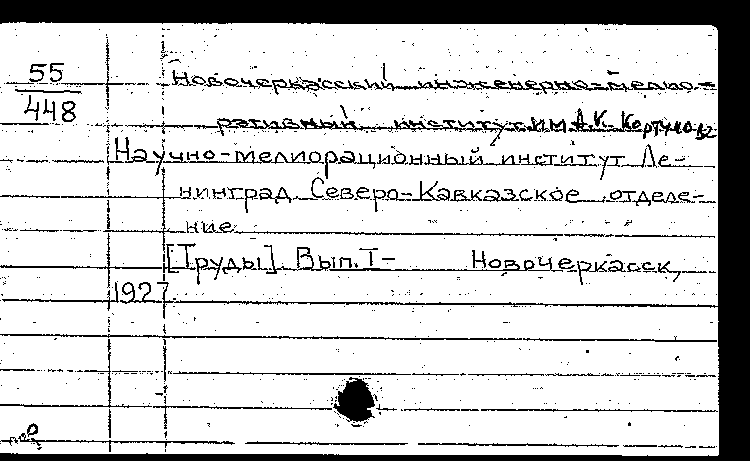 55
448
Новочеркасский инженерно-мелио-
ративный институт им. А.К. Кортунова
Научно-мелиорационный институт Ле-
нинград Северо-Кавказское отделе-
ние
[Труды]. Вып. I- Новочеркасск,
1927